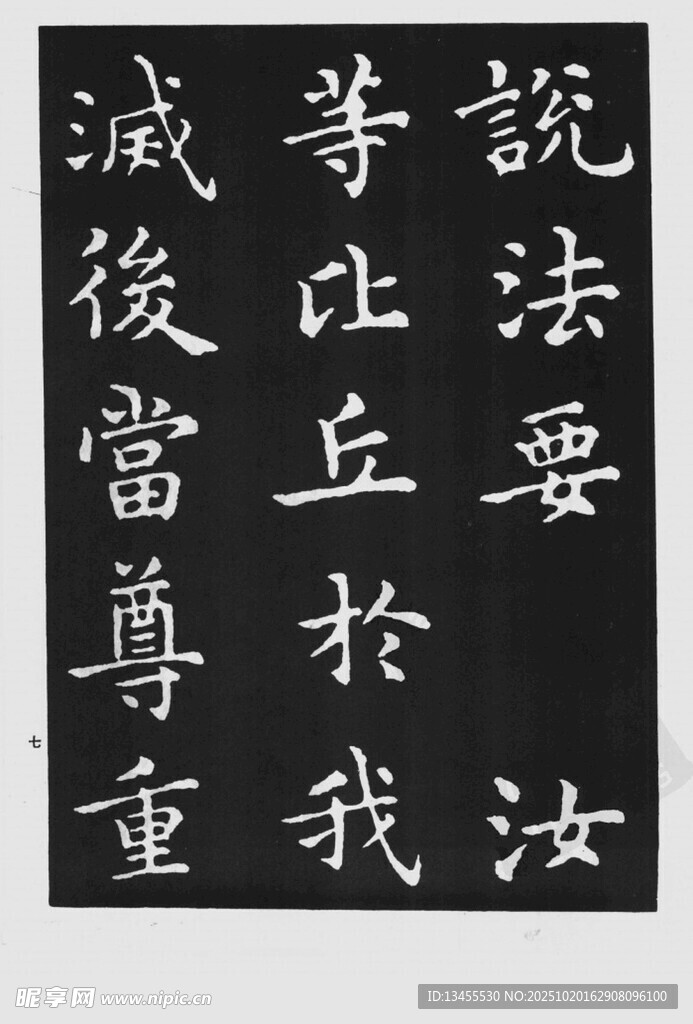 說法要 汝
等比丘於我
滅後當尊重
七
昵享网 www.nipic.cn
ID:13455530 NO:20251020162908096100